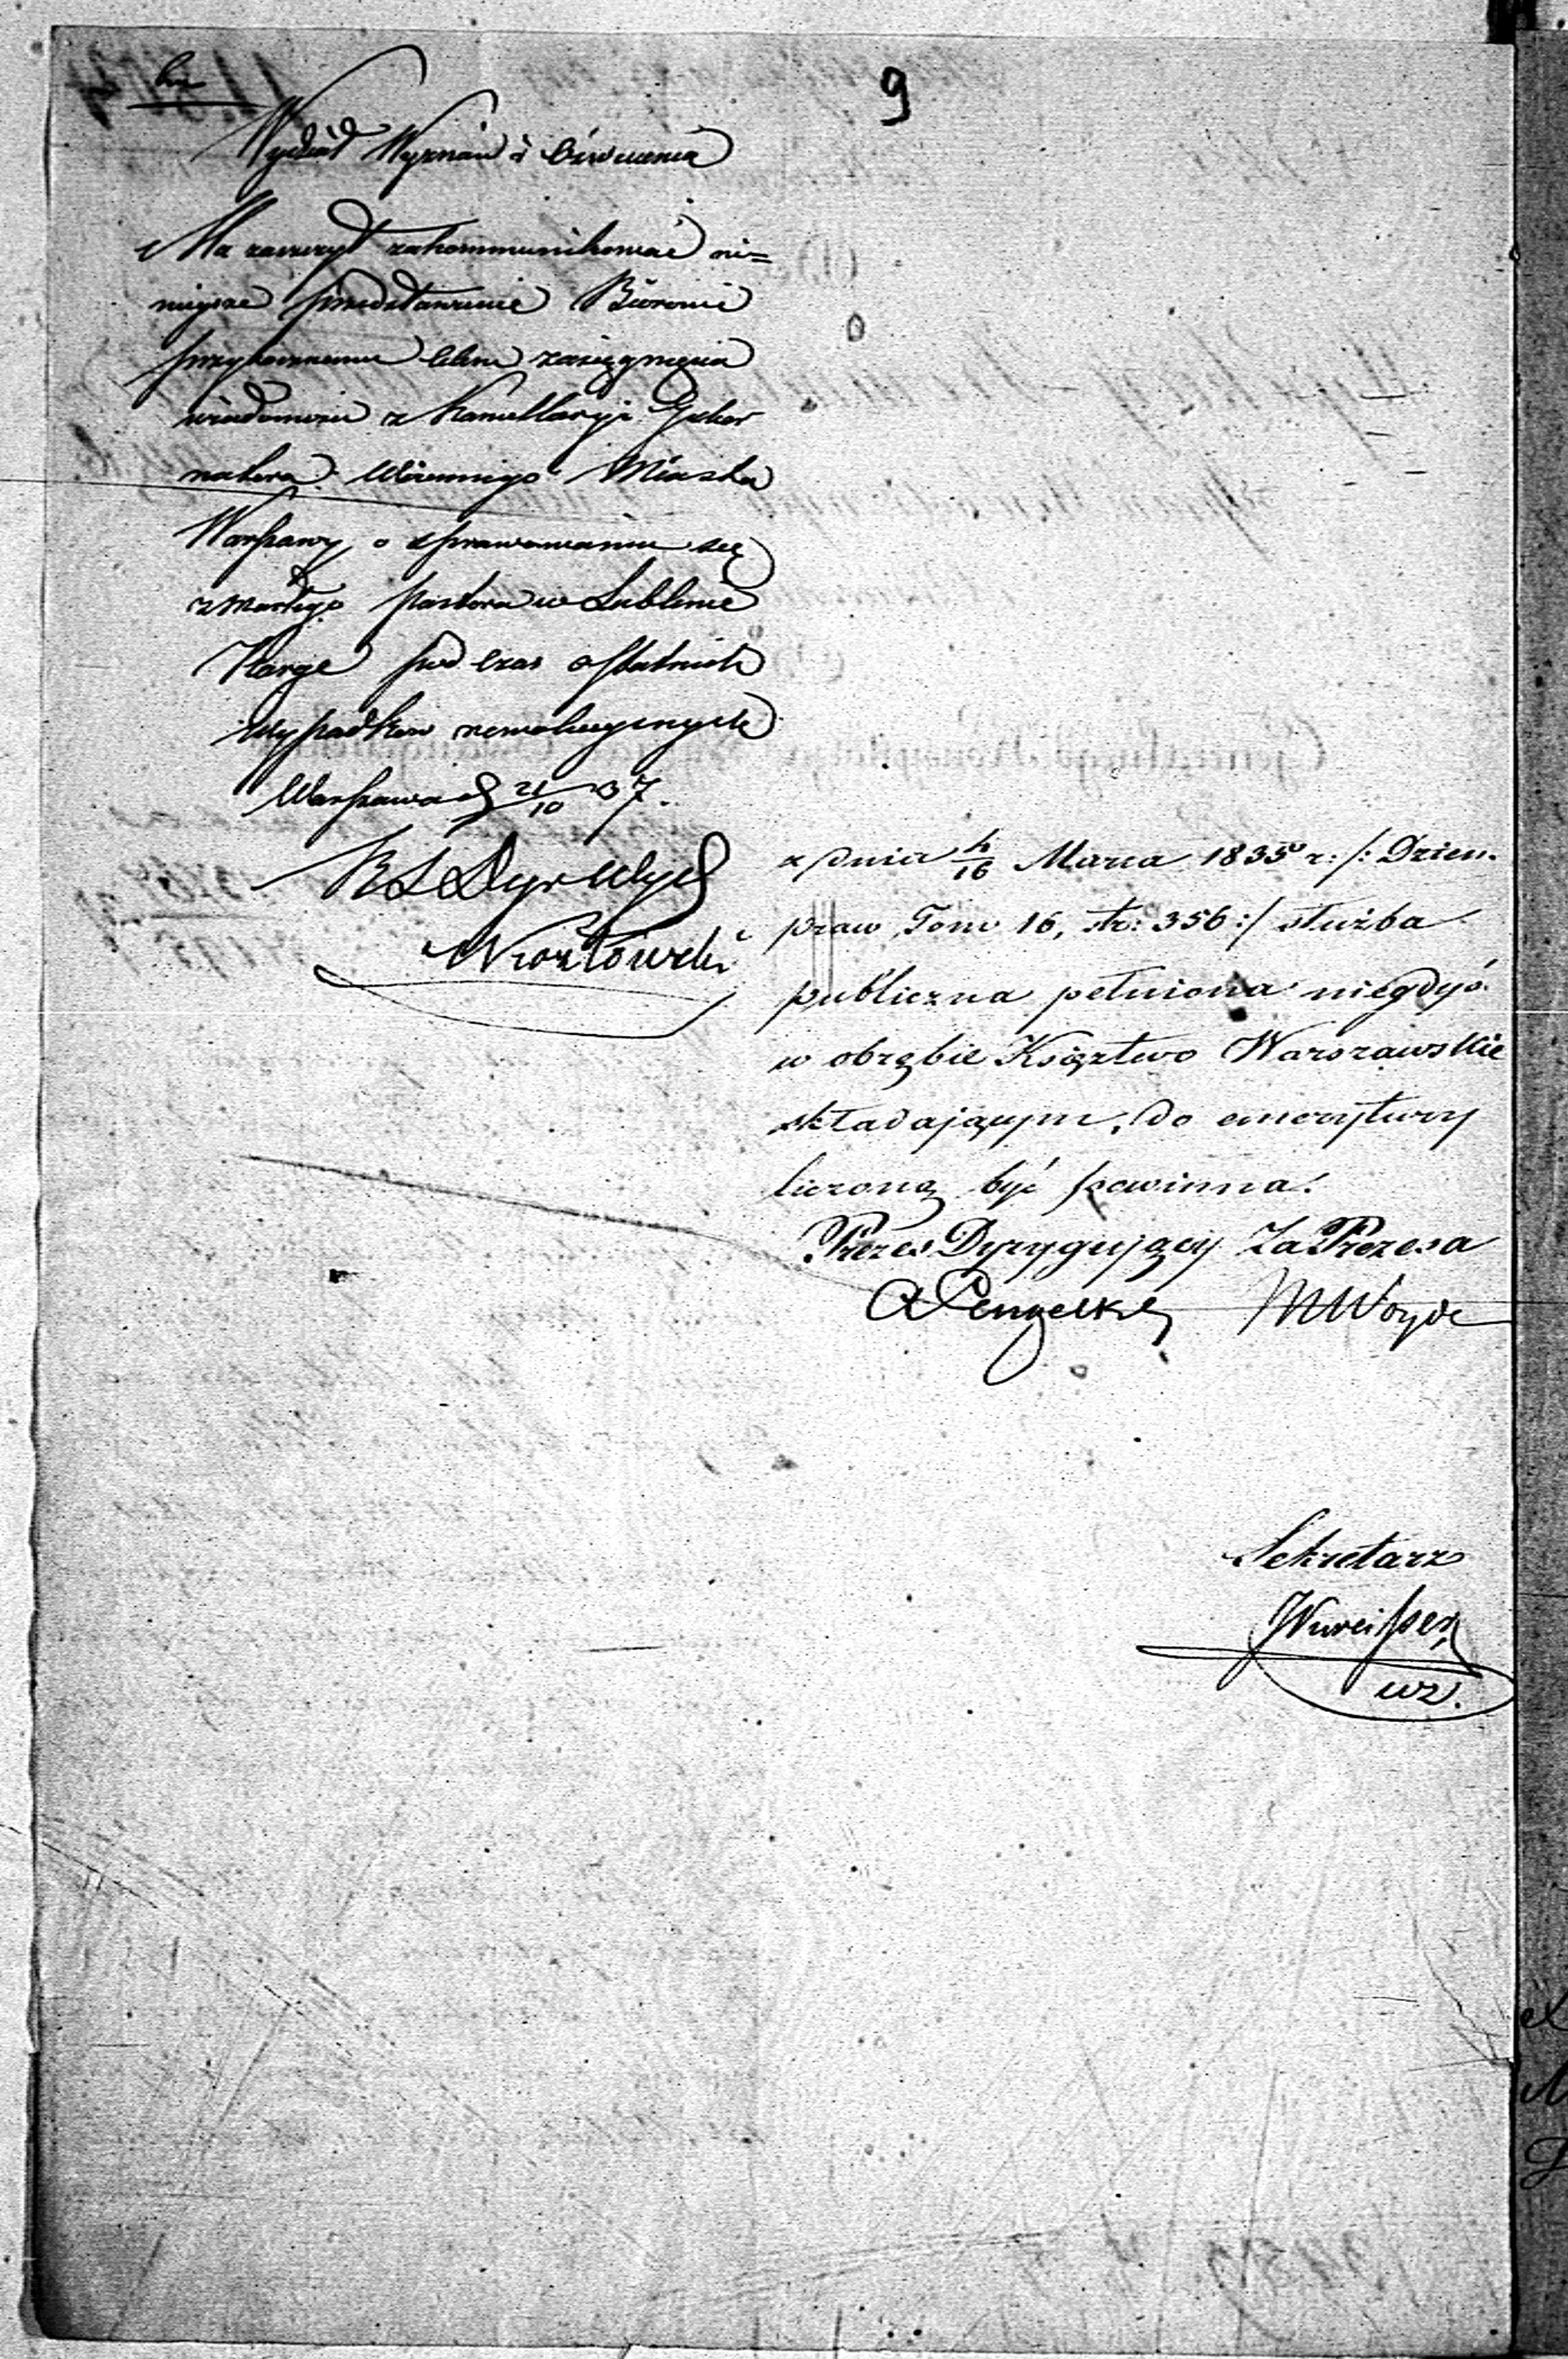 9
Wydział Wyznań i Oświecenia
Ma zaszczyt zakommunikować ni=
niejsze przedstawienie Biórowi
przybocznemu celem zasięgnięcia
wiadomości z Kancellaryi Guber
natora Wojennego Miasta
Warszawy, o sprawowaniu się
zmarłego pastora w Lublinie
Karge pod czas ostatnich
wypadków rewolucyjnych
Warszawa d 21/10 37.
Kozłowski
z dnia 4/16 Marca 1835 r: /: Dzien.
praw Tom 16, str: 356 :/ służba
publiczna pełniona niegdyś
w obrębie Księztwo Warszawskie
składającym, do emerytury
liczoną być powinna.
Prezes Dyrygujący Za Prezesa
M Woyde
Sekretarz
wz.